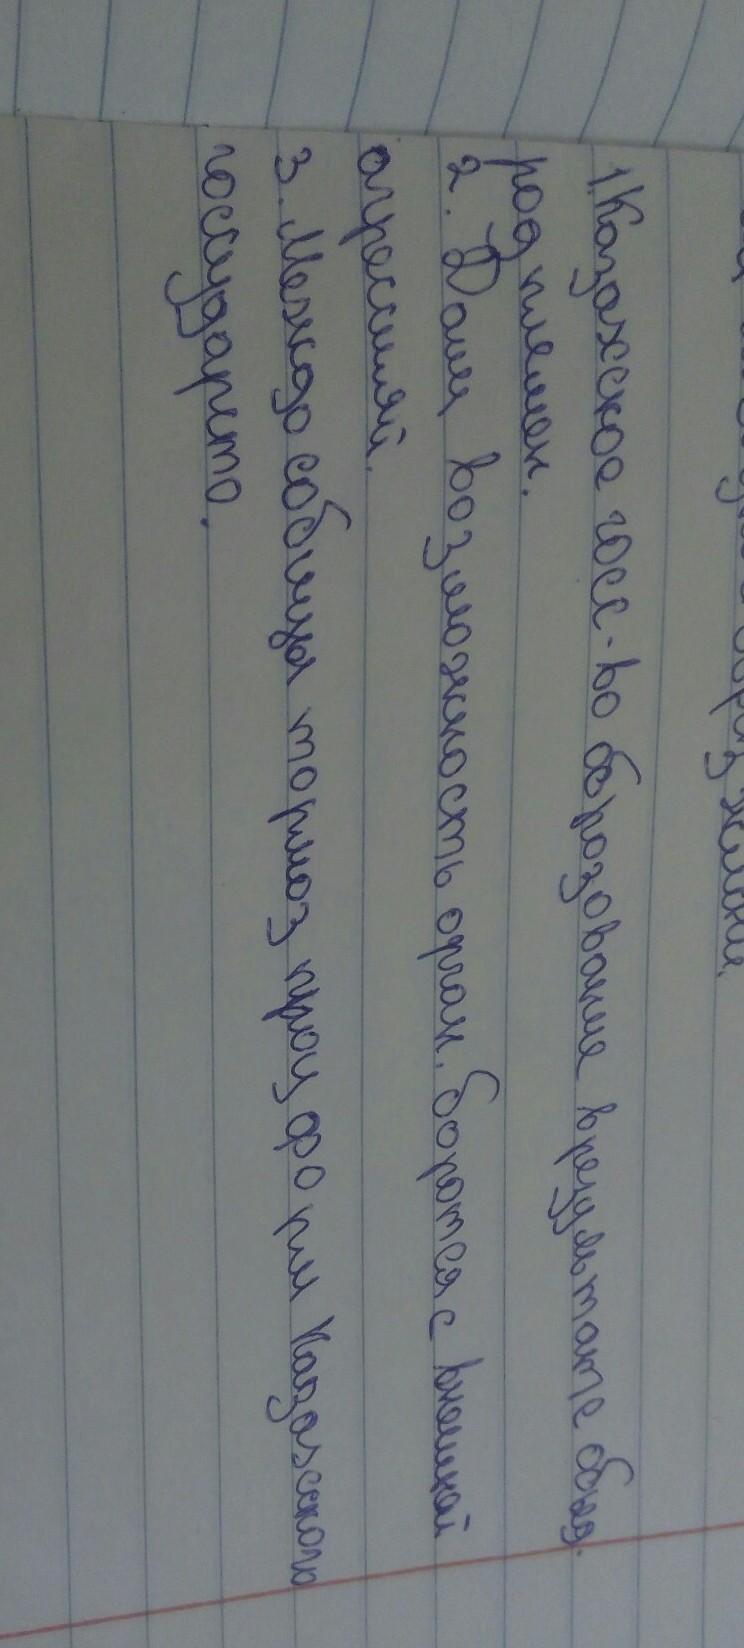 образ жизни.
1. Казахское госс-во борозование врезультате обьед.
род племен.
2. Дали возиможность орган. боротся с внешней
агрессияй.
3. Междо собицы тормоз проц форм Казахского
госсударсто.